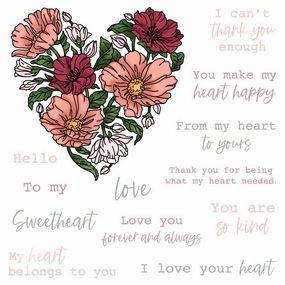 I can't
thank you
enough
You make my
heart happy
From my heart
to yours
Hello
Thank you for being
what my heart needed.
To my
love
You are
so kind
Sweetheart
Love you
forever and always
My heart
belongs to you
I love your heart